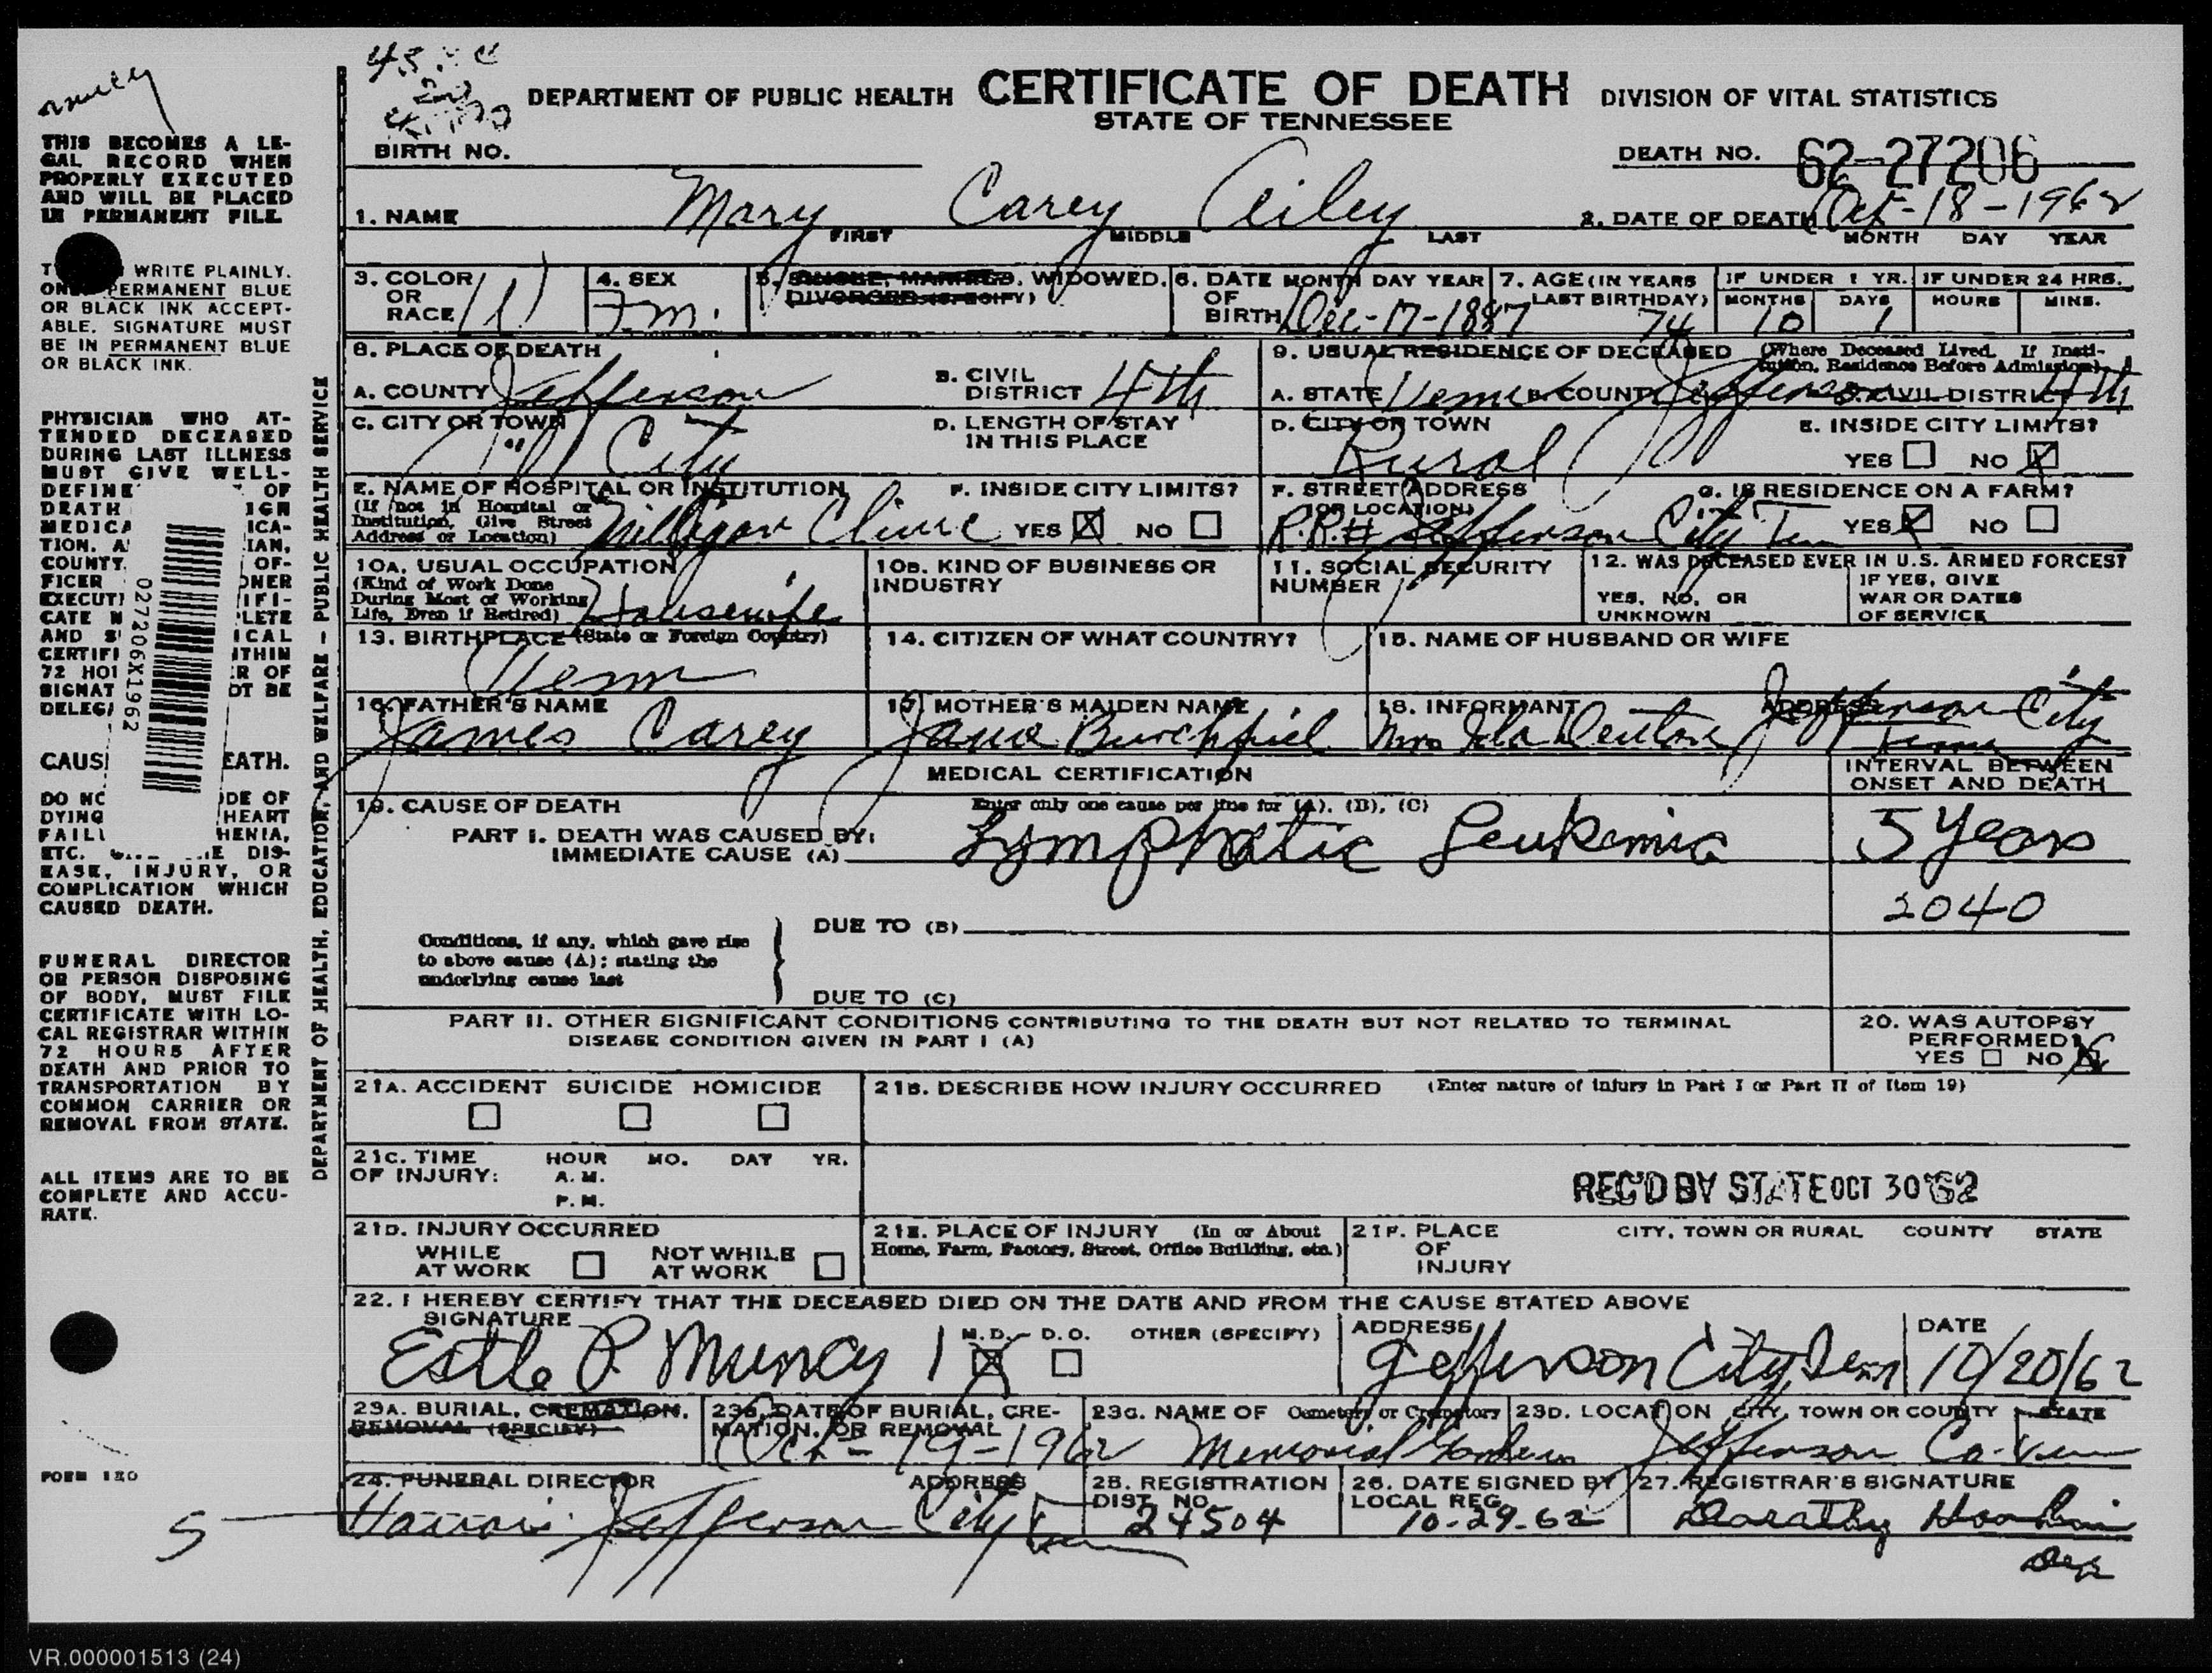 DEPARTMENT OF PUBLIC HEALTH CERTIFICATE OF DEATH DIVISION OF VITAL STATISTICS
STATE OF TENNESSEE
BIRTH NO.
DEATH NO. 62-27206
1. NAME Mary Carey Ailey 2. DATE OF DEATH Oct-18-1962
FIRST MIDDLE LAST MONTH DAY YEAR
3. COLOR OR RACE W
4. SEX Fm.
5. SINGLE, MARRIED, WIDOWED, DIVORCED (SPECIFY)
6. DATE OF BIRTH MONTH DAY YEAR Dec-17-1887
7. AGE (IN YEARS LAST BIRTHDAY) 74
IF UNDER 1 YR. MONTHS 10 DAYS 1
IF UNDER 24 HRS. HOURS MINS.
8. PLACE OF DEATH
A. COUNTY Jefferson
B. CIVIL DISTRICT 4th
9. USUAL RESIDENCE OF DECEASED (Where Deceased Lived. If Institution, Residence Before Admission)
A. STATE Tenn B. COUNTY Jefferson C. CIVIL DISTRICT 4th
C. CITY OR TOWN Jeff City
D. LENGTH OF STAY IN THIS PLACE
D. CITY OR TOWN Rural
E. INSIDE CITY LIMITS?
YES NO X
E. NAME OF HOSPITAL OR INSTITUTION
(If not in Hospital or Institution, Give Street Address or Location) Milligan Clinic
F. INSIDE CITY LIMITS?
YES X NO
F. STREET ADDRESS (OR LOCATION)
R.R.# Jefferson City Ten
G. IS RESIDENCE ON A FARM?
YES X NO
10A. USUAL OCCUPATION
(Kind of Work Done During Most of Working Life, Even if Retired) Housewife
10B. KIND OF BUSINESS OR INDUSTRY
11. SOCIAL SECURITY NUMBER
12. WAS DECEASED EVER IN U.S. ARMED FORCES?
YES, NO, OR UNKNOWN
IF YES, GIVE WAR OR DATES OF SERVICE
13. BIRTHPLACE (State or Foreign Country)
Tenn
14. CITIZEN OF WHAT COUNTRY?
15. NAME OF HUSBAND OR WIFE
16. FATHER'S NAME
James Carey
17. MOTHER'S MAIDEN NAME
Jane Burchfiel
18. INFORMANT ADDRESS
Mrs Ida Denton Jefferson City Tenn
MEDICAL CERTIFICATION
INTERVAL BETWEEN ONSET AND DEATH
19. CAUSE OF DEATH Enter only one cause per line for (A), (B), (C)
PART I. DEATH WAS CAUSED BY:
IMMEDIATE CAUSE (A) Lymphatic Leukemia 5 years
2040
DUE TO (B)
Conditions, if any, which gave rise
to above cause (A); stating the
underlying cause last
DUE TO (C)
PART II. OTHER SIGNIFICANT CONDITIONS CONTRIBUTING TO THE DEATH BUT NOT RELATED TO TERMINAL
DISEASE CONDITION GIVEN IN PART I (A)
20. WAS AUTOPSY PERFORMED?
YES NO X
21A. ACCIDENT SUICIDE HOMICIDE
21B. DESCRIBE HOW INJURY OCCURRED (Enter nature of injury in Part I or Part II of Item 19)
21C. TIME OF INJURY: HOUR MO. DAY YR.
A. M.
P. M.
REC'D BY STATE OCT 30 '62
21D. INJURY OCCURRED
WHILE AT WORK
NOT WHILE AT WORK
21E. PLACE OF INJURY (In or About Home, Farm, Factory, Street, Office Building, etc.)
21F. PLACE OF INJURY CITY, TOWN OR RURAL COUNTY STATE
22. I HEREBY CERTIFY THAT THE DECEASED DIED ON THE DATE AND FROM THE CAUSE STATED ABOVE
SIGNATURE Estle P. Muncy
M.D. X D.O. OTHER (SPECIFY)
ADDRESS Jefferson City, Tenn
DATE 10/20/62
23A. BURIAL, CREMATION, REMOVAL (SPECIFY)
23B. DATE OF BURIAL, CREMATION, OR REMOVAL
Oct-19-1962
23C. NAME OF Cemetery or Crematory
Memorial Gardens
23D. LOCATION CITY, TOWN OR COUNTY STATE
Jefferson Co. Tenn
24. FUNERAL DIRECTOR ADDRESS
Jefferson City Tenn
25. REGISTRATION DIST. NO. 24504
26. DATE SIGNED BY LOCAL REG. 10-29-62
27. REGISTRAR'S SIGNATURE
Dorothy
Dep
THIS BECOMES A LE-
GAL RECORD WHEN
PROPERLY EXECUTED
AND WILL BE PLACED
IN PERMANENT FILE.
WRITE PLAINLY.
PERMANENT BLUE
OR BLACK INK ACCEPT-
ABLE. SIGNATURE MUST
BE IN PERMANENT BLUE
OR BLACK INK.
PHYSICIAN WHO AT-
TENDED DECEASED
DURING LAST ILLNESS
MUST GIVE WELL-
DEATH
027206X1962
DO NO
DYING HEART
EASE, INJURY, OR
COMPLICATION WHICH
CAUSED DEATH.
FUNERAL DIRECTOR
OR PERSON DISPOSING
OF BODY, MUST FILE
CERTIFICATE WITH LO-
CAL REGISTRAR WITHIN
72 HOURS AFTER
DEATH AND PRIOR TO
TRANSPORTATION BY
COMMON CARRIER OR
REMOVAL FROM STATE.
ALL ITEMS ARE TO BE
COMPLETE AND ACCU-
RATE.
FORM 120
5
DEPARTMENT OF HEALTH, EDUCATION, AND WELFARE - PUBLIC HEALTH SERVICE
VR.000001513 (24)